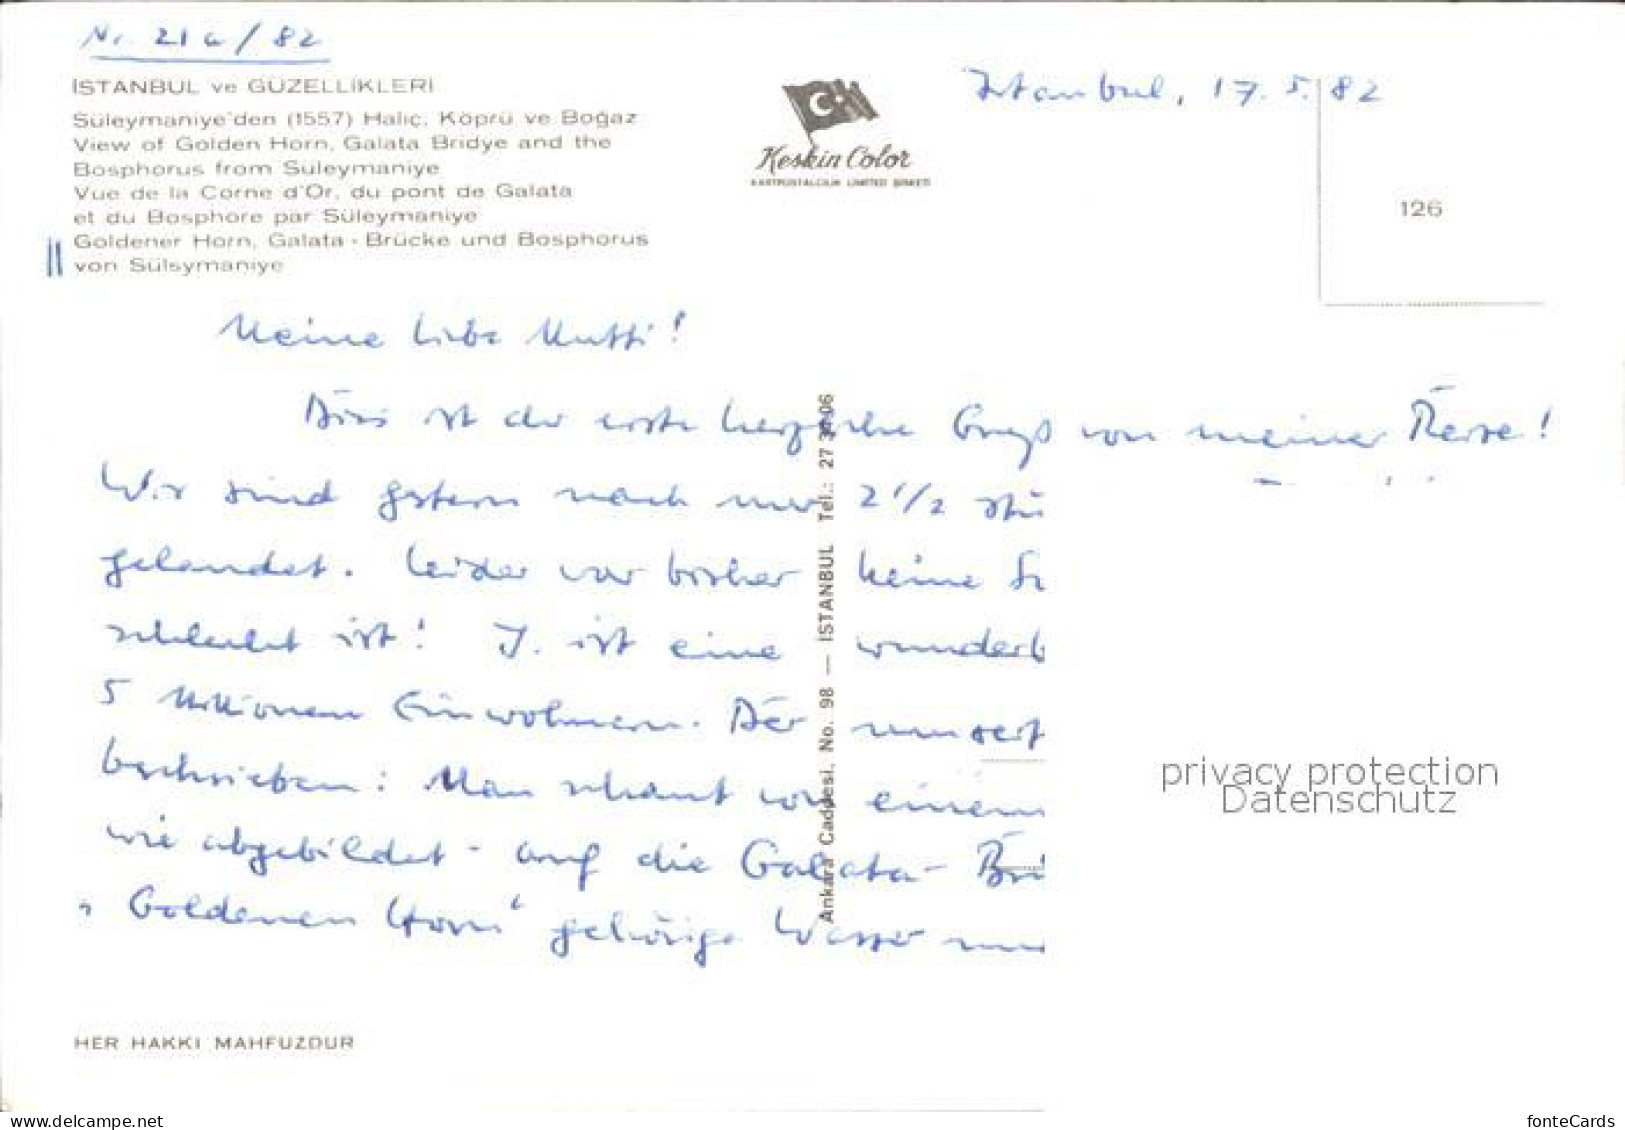 Nr. 21a/82
İSTANBUL ve GÜZELLİKLERİ
Süleymaniye'den (1557) Haliç, Köprü ve Boğaz
View of Golden Horn, Galata Bridye and the
Bosphorus from Süleymaniye
Vue de la Corne d'Or, du pont de Galata
et du Bosphore par Süleymaniye
Goldener Horn, Galata - Brücke und Bosphorus
von Sülsymaniye
Keskin Color
KARTPOSTALCILIK LIMITED ŞIRKETI
Istanbul, 17.5.82
126
Meine liebe Mutti!
Dies ist der erste herzliche Gruß von meiner Reise!
Wir sind gestern nach nur 2 1/2 Stü
gelandet. Leider war bisher keine
schlecht ist! I. ist eine wunderb
5 Millionen Einwohnern. Der
beschrieben: Man schaut von einem
wie abgebildet - auf die Galata- Brü
"Goldenen Horn" gehörige Wasser
Ankara Caddesi, No. 98 — İSTANBUL Tel.: 27 30 06
privacy protection
Datenschutz
HER HAKKI MAHFUZDUR
www.delcampe.net
fonteCards